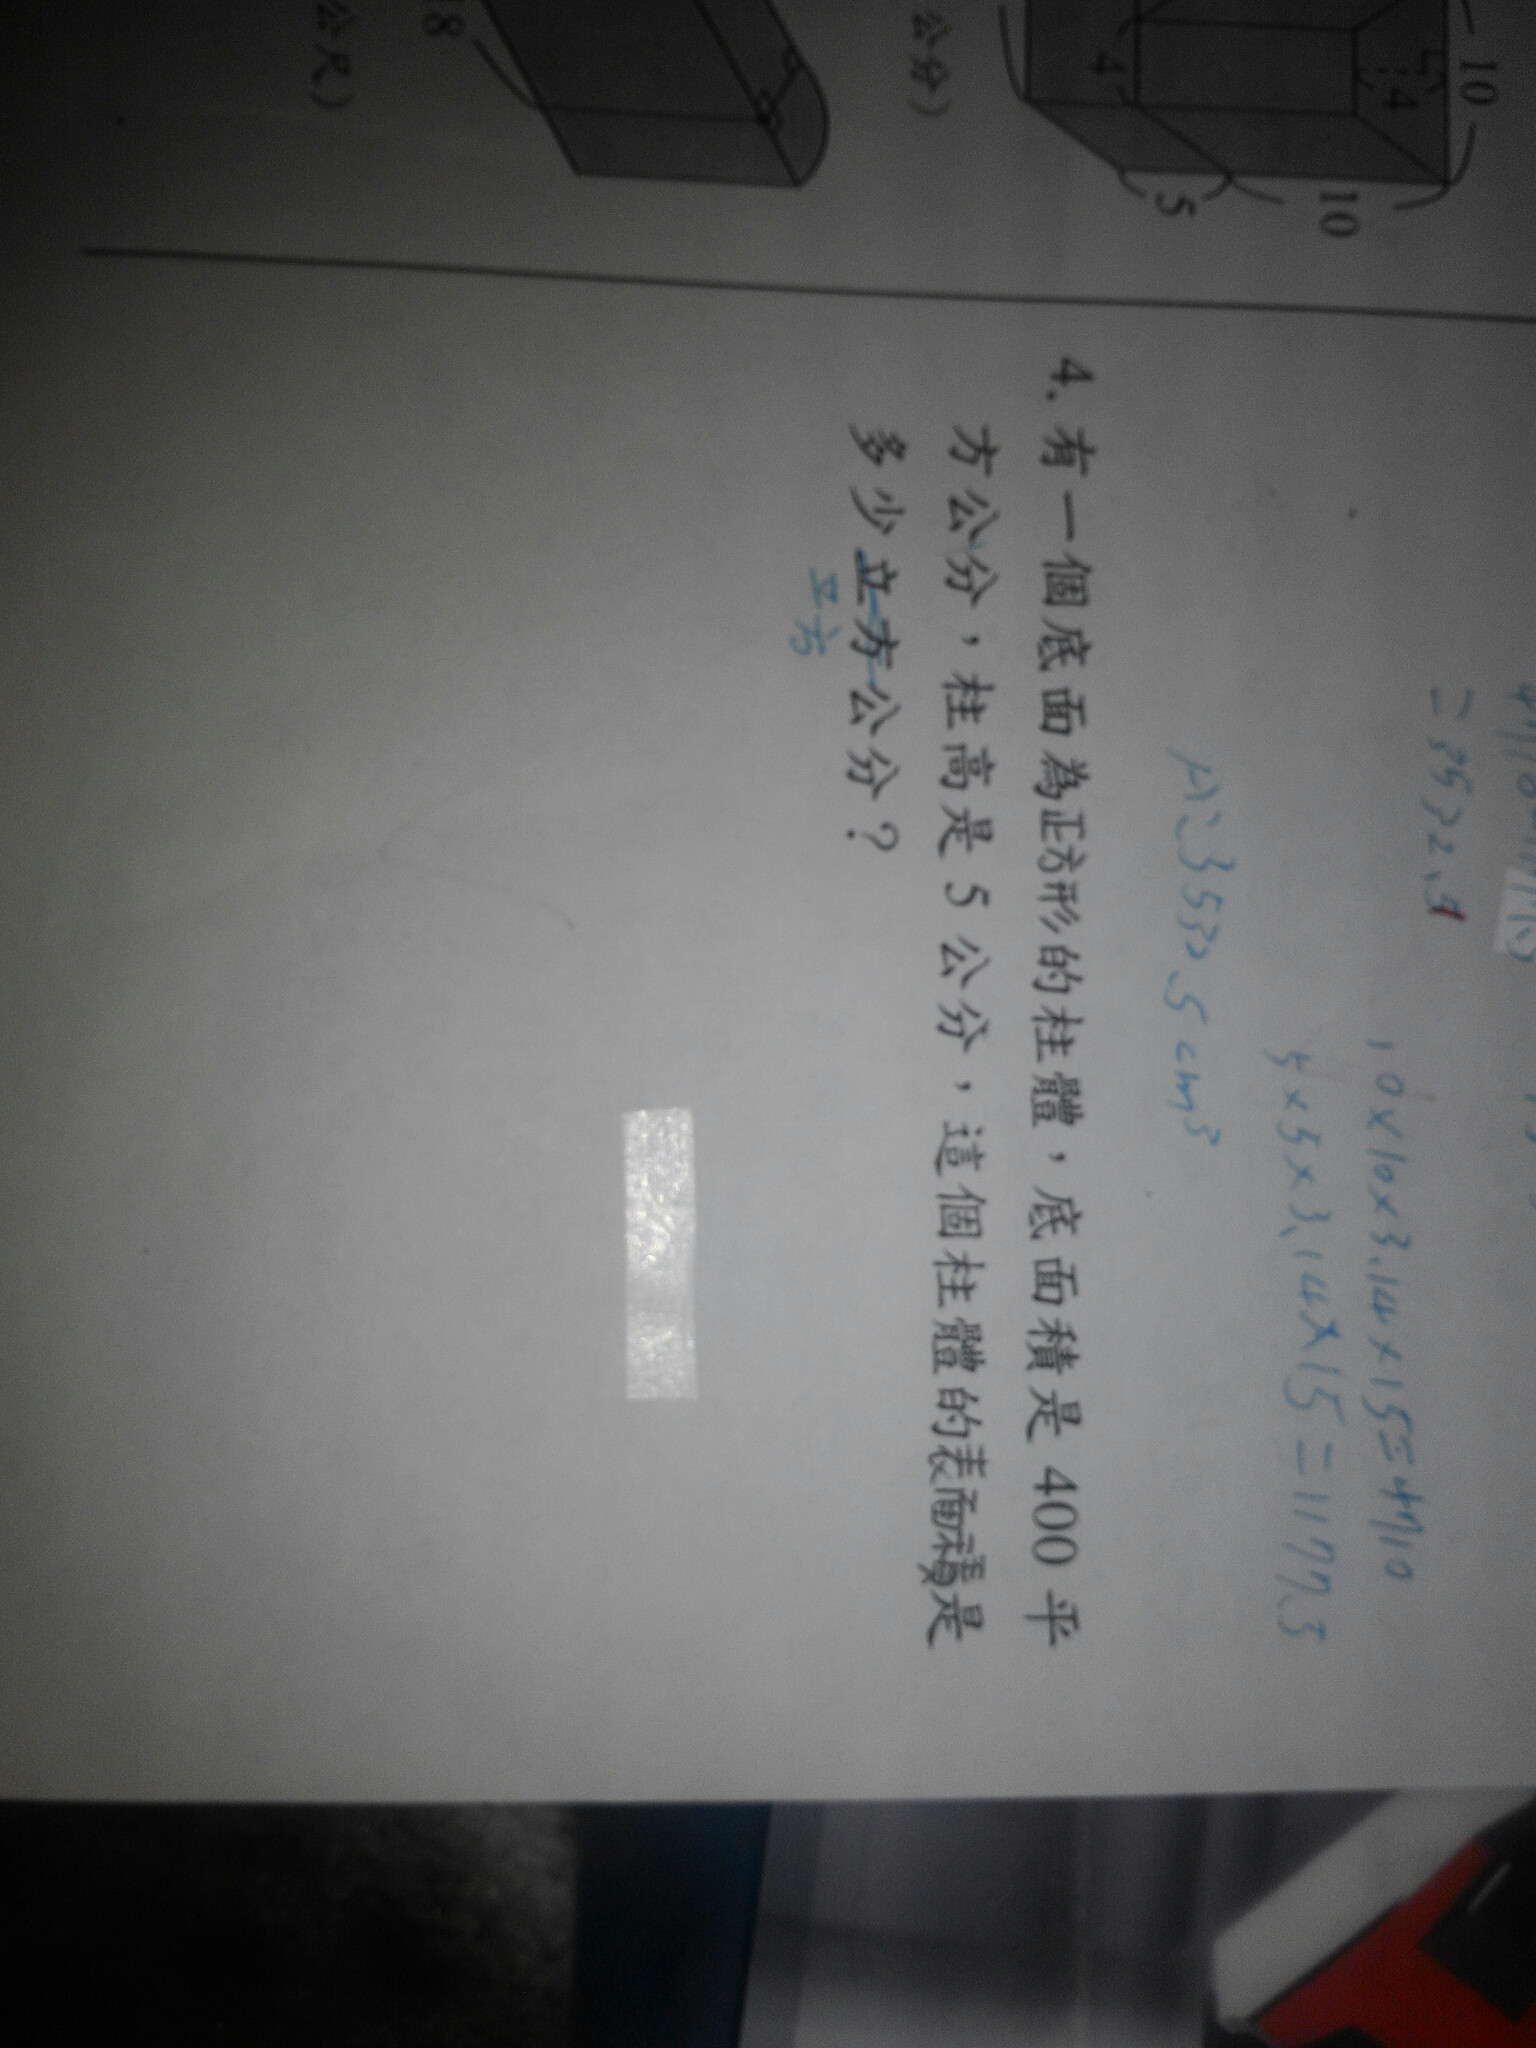 10
4
4
10
5
公分)
18
公尺)
=3532.5
10×10×3.14×15=4710
5×5×3.14×15=1177.5
A:3532.5cm³
4. 有一個底面為正方形的柱體,底面積是 400 平
方公分,柱高是 5 公分,這個柱體的表面積是
多少立方公分?
立方